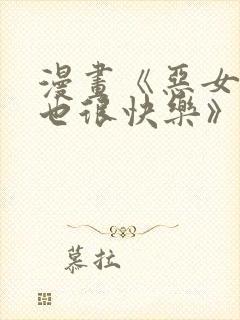 漫畫《惡女
也很快樂》
慕拉